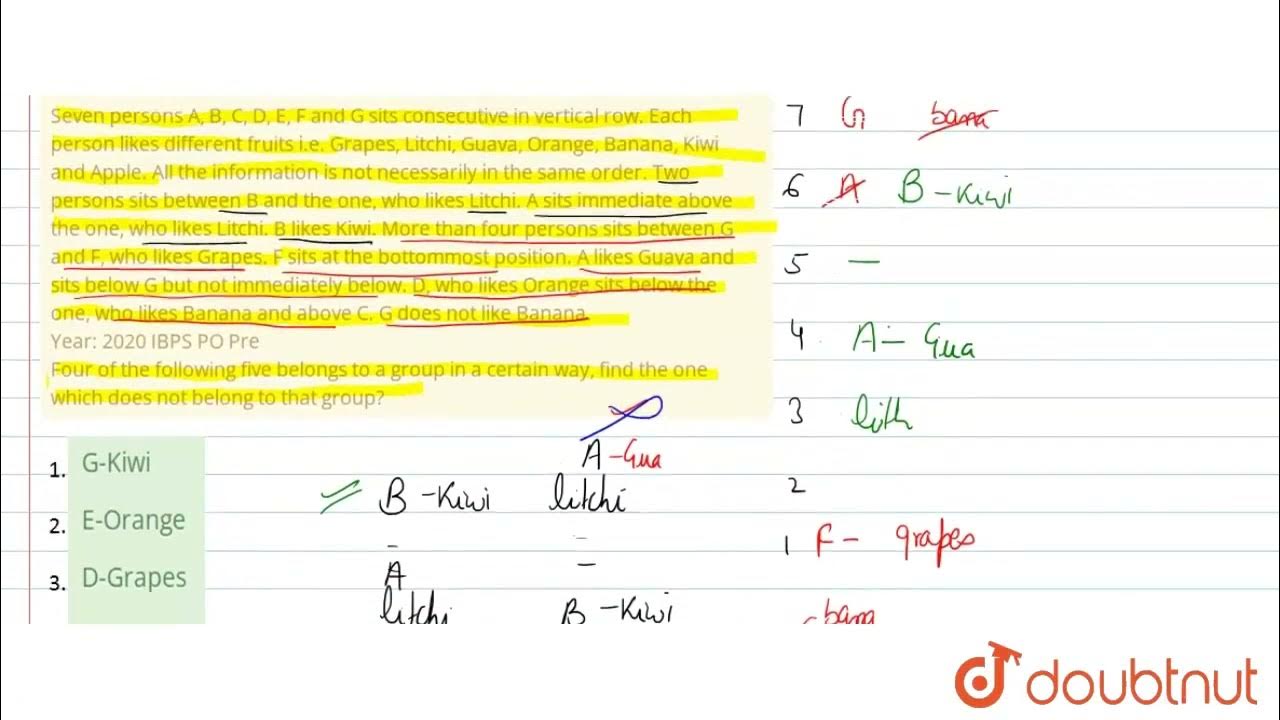 Seven persons A, B, C, D, E, F and G sits consecutive in vertical row. Each
person likes different fruits i.e. Grapes, Litchi, Guava, Orange, Banana, Kiwi
and Apple. All the information is not necessarily in the same order. Two
persons sits between B and the one, who likes Litchi. A sits immediate above
the one, who likes Litchi. B likes Kiwi. More than four persons sits between G
and F, who likes Grapes. F sits at the bottommost position. A likes Guava and
sits below G but not immediately below. D, who likes Orange sits below the
one, who likes Banana and above C. G does not like Banana.
Year: 2020 IBPS PO Pre
Four of the following five belongs to a group in a certain way, find the one
which does not belong to that group?
1. G-Kiwi
2. E-Orange
3. D-Grapes
A-Gua
B-Kiwi litchi
- -
A -
litchi B-Kiwi
7 G bana
6 A B-Kiwi
5 —
4 A- Gua
3 lith
2
1 F- grapes
bana
doubtnut